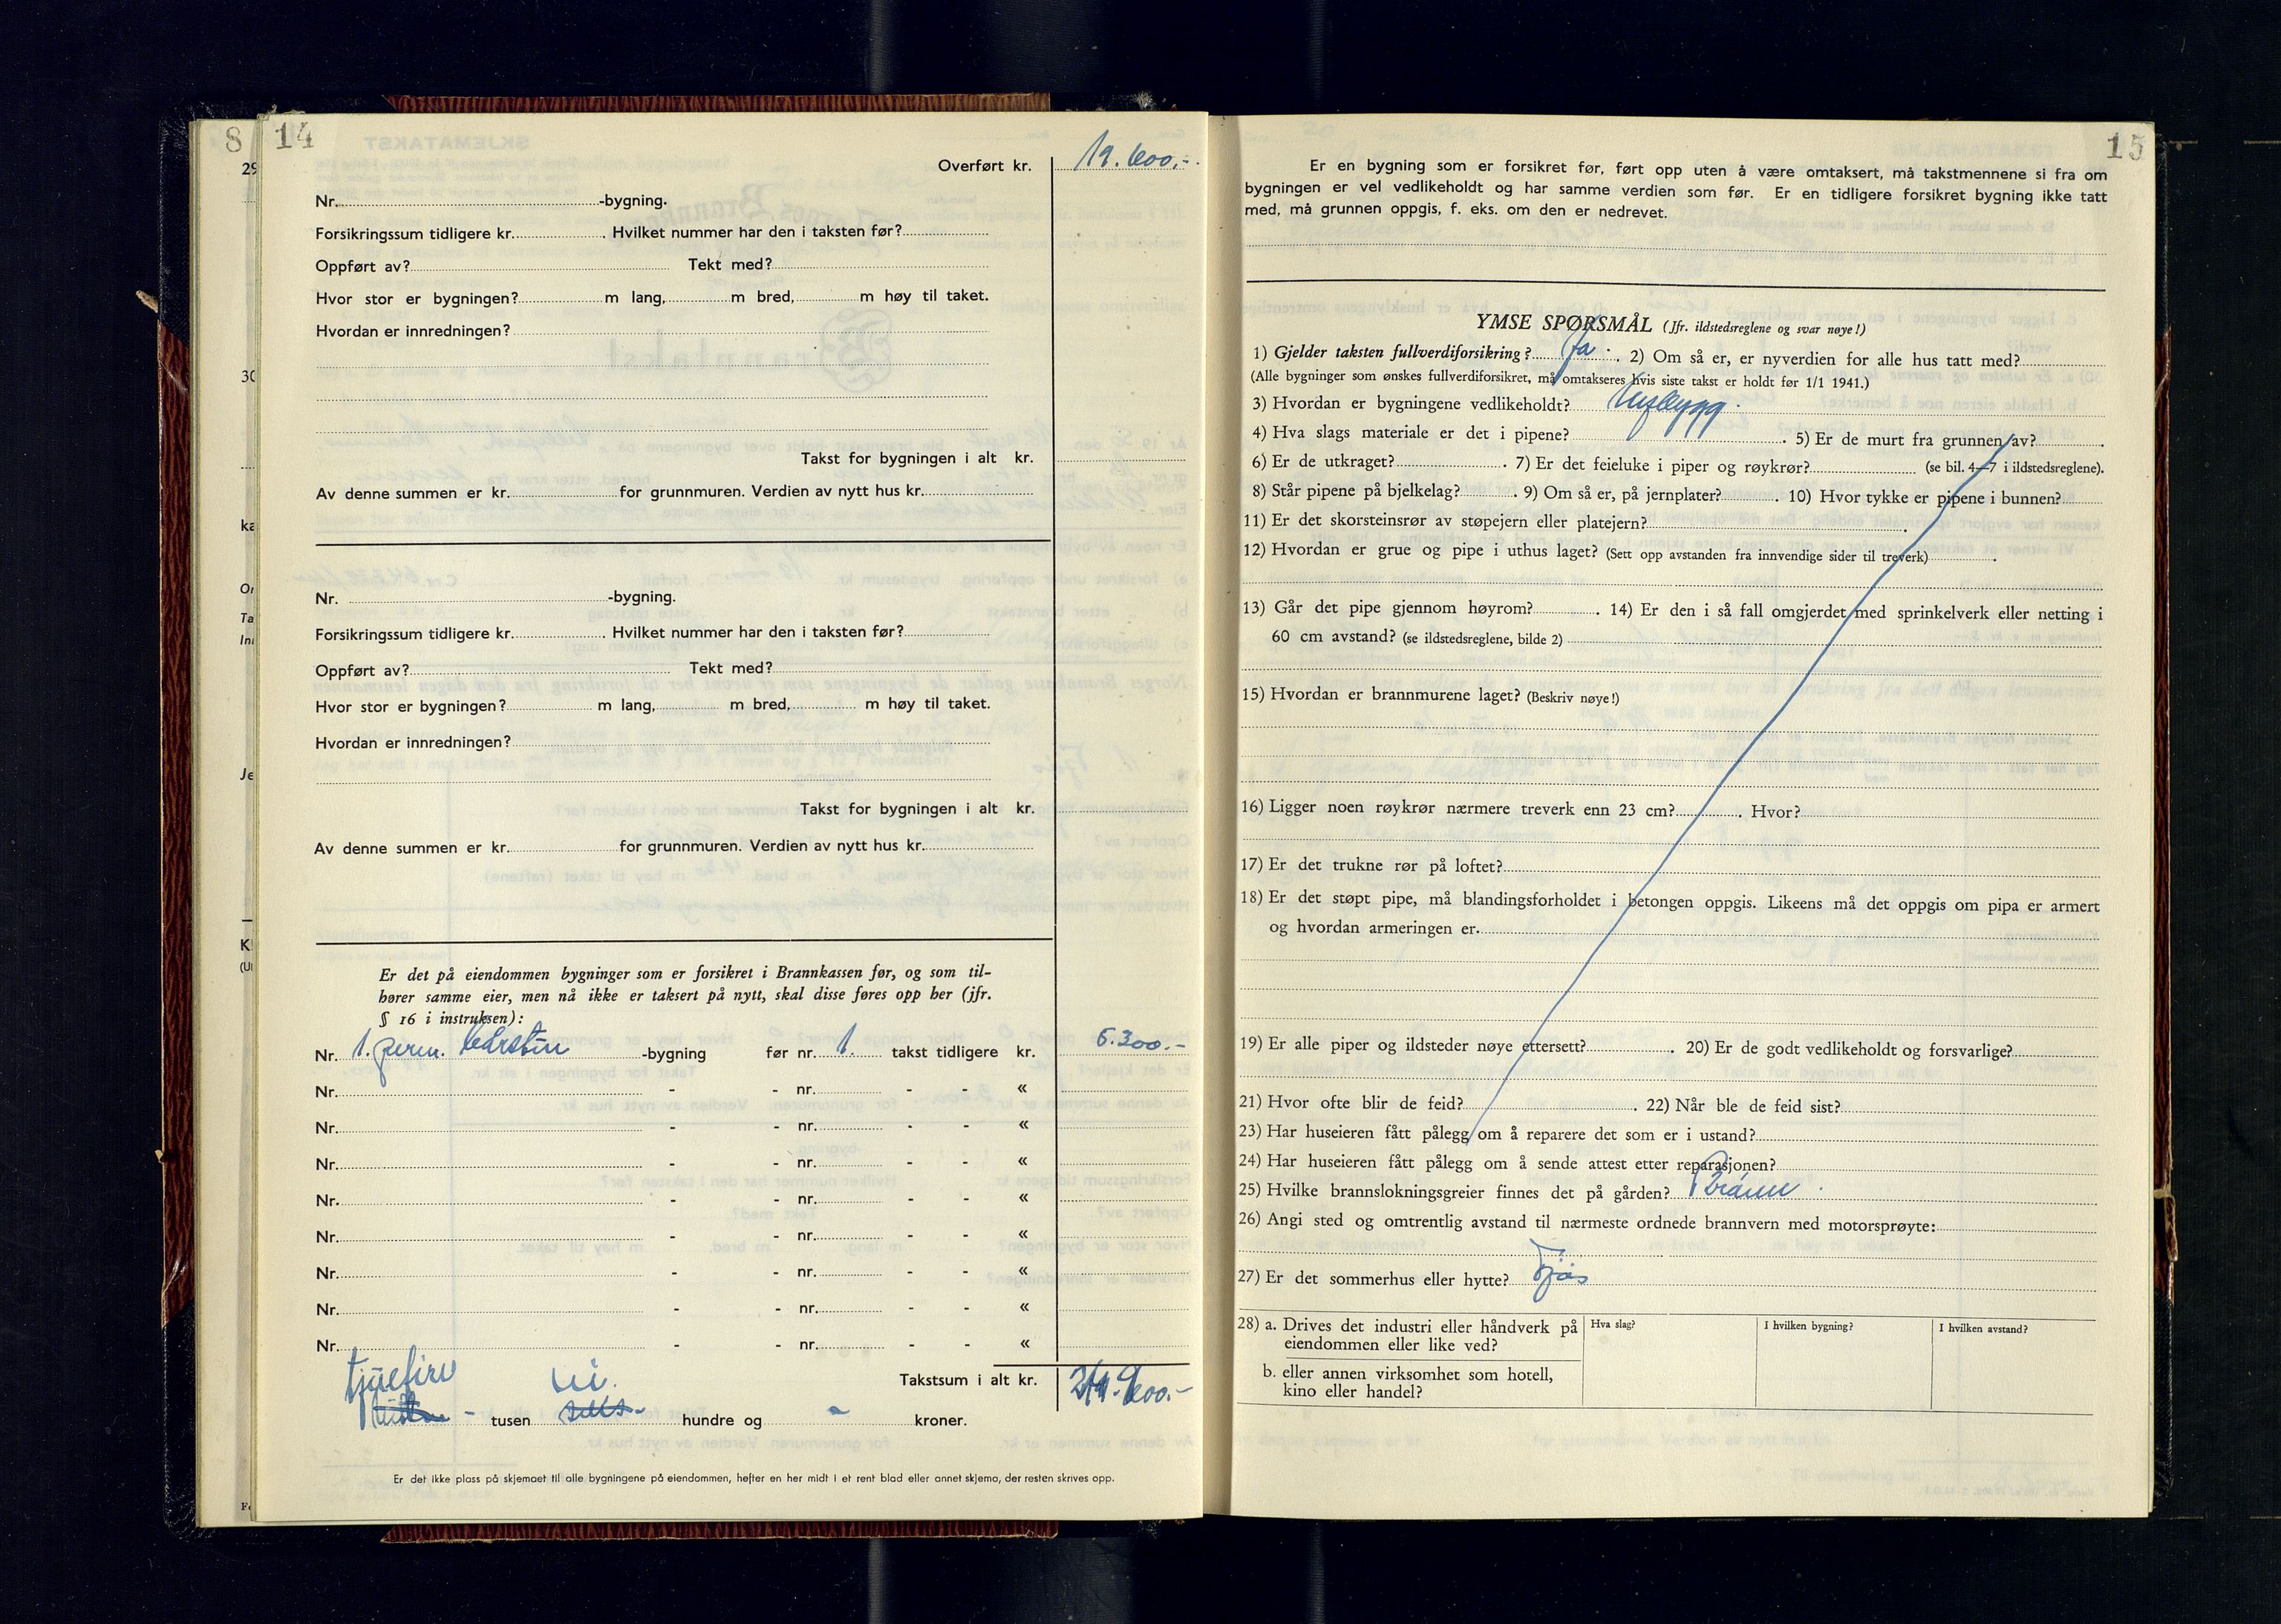 8
14
Overført kr. 19.600,-
Nr. -bygning.
Forsikringssum tidligere kr. . Hvilket nummer har den i taksten før?
Oppført av? Tekt med?
Hvor stor er bygningen? m lang, m bred, m høy til taket.
Hvordan er innredningen?
Takst for bygningen i alt kr.
Av denne summen er kr. for grunnmuren. Verdien av nytt hus kr.
Nr. -bygning.
Forsikringssum tidligere kr. . Hvilket nummer har den i taksten før?
Oppført av? Tekt med?
Hvor stor er bygningen? m lang, m bred, m høy til taket.
Hvordan er innredningen?
Takst for bygningen i alt kr.
Av denne summen er kr. for grunnmuren. Verdien av nytt hus kr.
Er det på eiendommen bygninger som er forsikret i Brannkassen før, og som til-
hører samme eier, men nå ikke er taksert på nytt, skal disse føres opp her (jfr.
§ 16 i instruksen):
Nr. 1. -bygning før nr. 1. takst tidligere kr. 5.300.-
Nr. - - nr. - - «
Nr. - - nr. - - «
Nr. - - nr. - - «
Nr. - - nr. - - «
Nr. - - nr. - - «
Nr. - - nr. - - «
Nr. - - nr. - - «
Nr. - - nr. - - «
Takstsum i alt kr.
tjuefire
tusen hundre og - kroner.
Er det ikke plass på skjemaet til alle bygningene på eiendommen, hefter en her midt i et rent blad eller annet skjema, der resten skrives opp.
15
Er en bygning som er forsikret før, ført opp uten å være omtaksert, må takstmennene si fra om
bygningen er vel vedlikeholdt og har samme verdien som før. Er en tidligere forsikret bygning ikke tatt
med, må grunnen oppgis, f. eks. om den er nedrevet.
YMSE SPØRSMÅL (Jfr. ildstedsreglene og svar nøye!)
1) Gjelder taksten fullverdiforsikring? Ja. . 2) Om så er, er nyverdien for alle hus tatt med?
(Alle bygninger som ønskes fullverdiforsikret, må omtakseres hvis siste takst er holdt før 1/1 1941.)
3) Hvordan er bygningene vedlikeholdt? Nybygg.
4) Hva slags materiale er det i pipene? . 5) Er de murt fra grunnen av? .
6) Er de utkraget? . 7) Er det feieluke i piper og røykrør? (se bil. 4—7 i ildstedsreglene).
8) Står pipene på bjelkelag? . 9) Om så er, på jernplater? . 10) Hvor tykke er pipene i bunnen?
11) Er det skorsteinsrør av støpejern eller platejern? .
12) Hvordan er grue og pipe i uthus laget? (Sett opp avstanden fra innvendige sider til treverk) .
13) Går det pipe gjennom høyrom? . 14) Er den i så fall omgjerdet med sprinkelverk eller netting i
60 cm avstand? (se ildstedsreglene, bilde 2)
15) Hvordan er brannmurene laget? (Beskriv nøye!)
16) Ligger noen røykrør nærmere treverk enn 23 cm? . Hvor?
17) Er det trukne rør på loftet?
18) Er det støpt pipe, må blandingsforholdet i betongen oppgis. Likeens må det oppgis om pipa er armert
og hvordan armeringen er.
19) Er alle piper og ildsteder nøye ettersett? . 20) Er de godt vedlikeholdt og forsvarlige?
21) Hvor ofte blir de feid? . 22) Når ble de feid sist?
23) Har huseieren fått pålegg om å reparere det som er i ustand?
24) Har huseieren fått pålegg om å sende attest etter reparasjonen?
25) Hvilke brannslokningsgreier finnes det på gården?
26) Angi sted og omtrentlig avstand til nærmeste ordnede brannvern med motorsprøyte:
27) Er det sommerhus eller hytte? Fjøs
28) a. Drives det industri eller håndverk på eiendommen eller like ved?
Hva slag? I hvilken bygning? I hvilken avstand?
b. eller annen virksomhet som hotell,
kino eller handel?